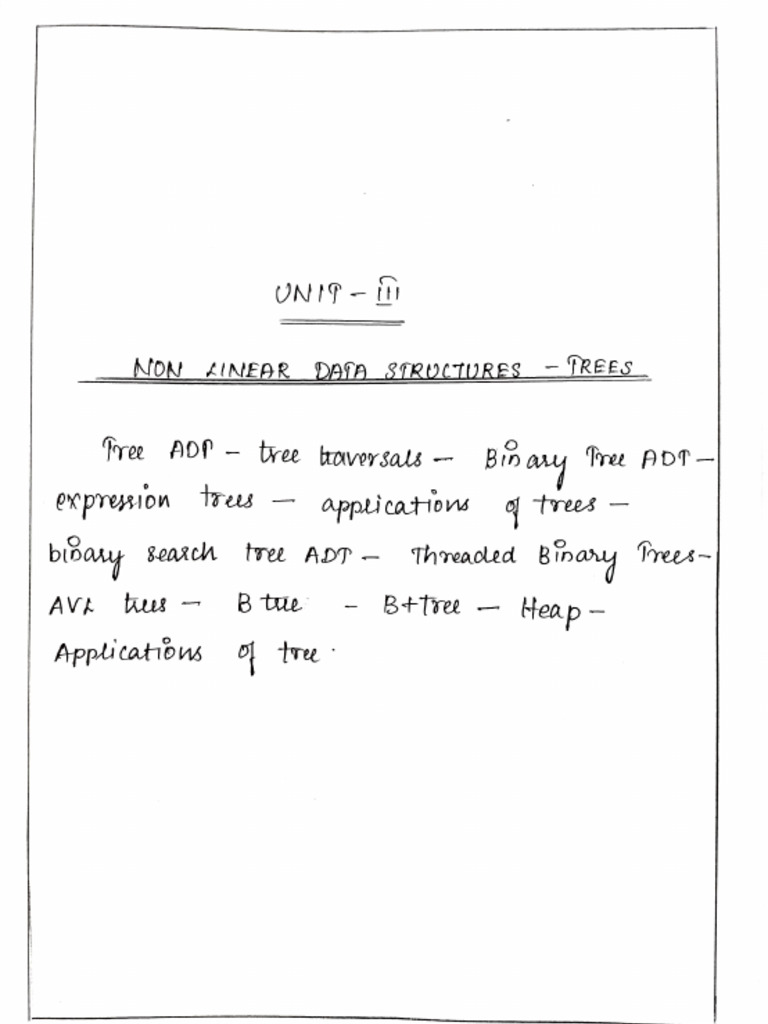 UNIT - III
NON LINEAR DATA STRUCTURES - TREES
Tree ADT - tree traversals - Binary Tree ADT -
expression trees - applications of trees -
binary search tree ADT - Threaded Binary Trees -
AVL trees - B tree - B+tree - Heap -
Applications of tree.